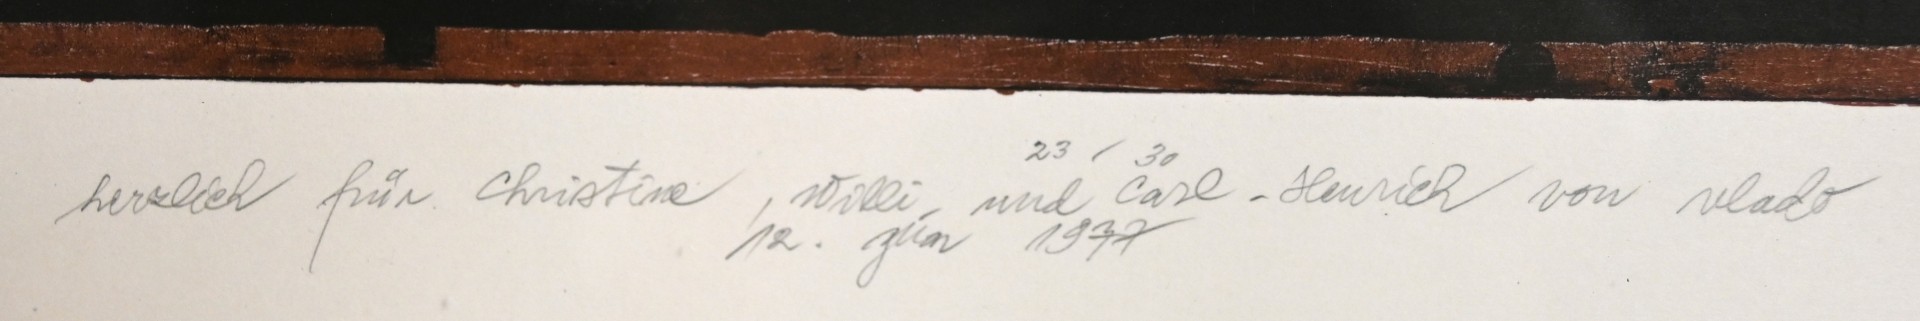 23 / 30
herzlich für Christine, Willi, und Carl-Heinrich von vlado
12. Jun 1977